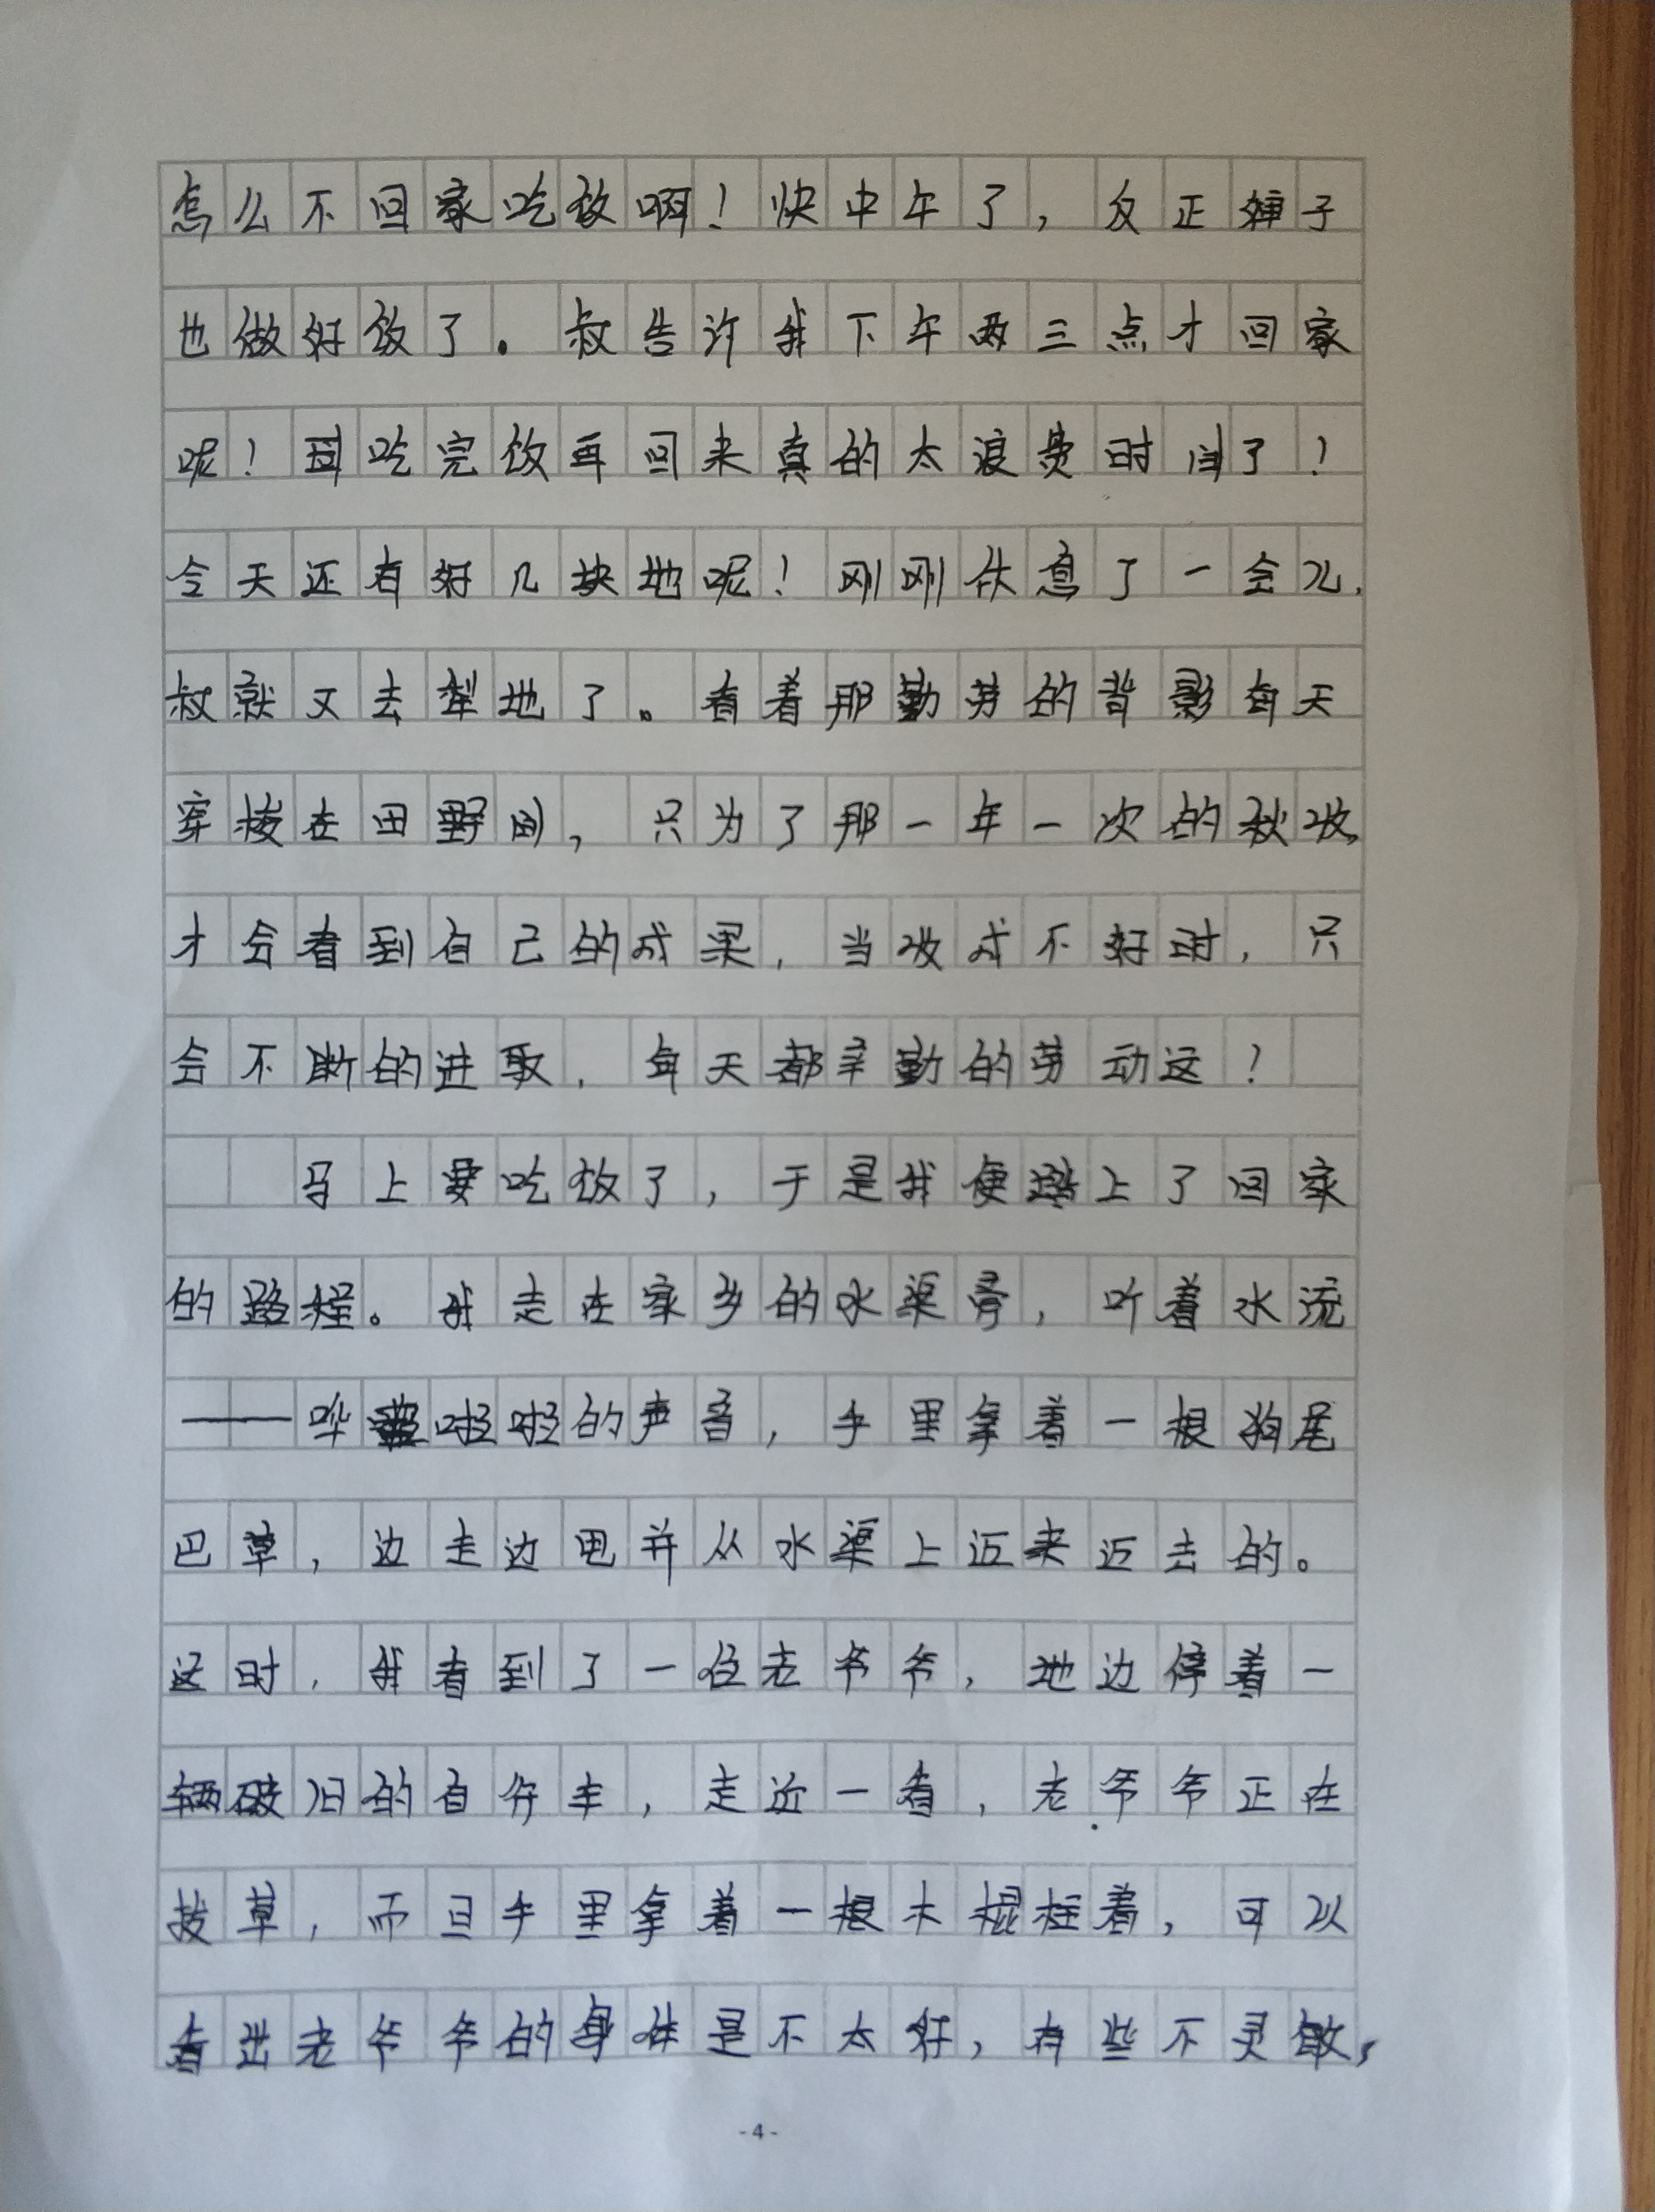 怎么不回家吃饭啊！快中午了，反正婶子
也做好饭了。叔告许我下午两三点才回家
呢！回吃完饭再回来真的太浪费时间了！
今天还有好几块地呢！刚刚休息了一会儿，
叔就又去犁地了。看着那勤劳的背影每天
穿梭在田野间，只为了那一年一次的秋收，
才会看到自己的成果，当收成不好时，只
会不断的进取，每天都辛勤的劳动这！
马上要吃饭了，于是我便踏上了回家
的路程。我走在家乡的水渠旁，听着水流
——哗啦啦的声音，手里拿着一根狗尾
巴草，边走边甩并从水渠上迈来迈去的。
这时，我看到了一位老爷爷，地边停着一
辆破旧的自行车，走近一看，老爷爷正在
拔草，而且手里拿着一根木棍柱着，可以
看出老爷爷的身体是不太好，有些不灵敏，
-4-